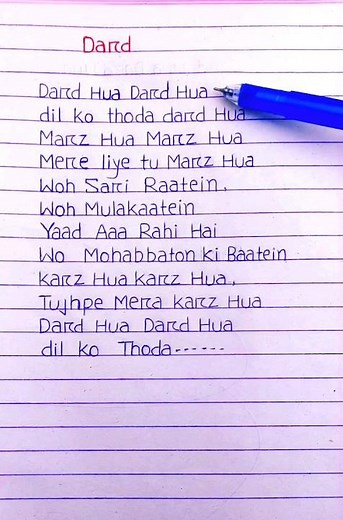 Dard
Dard Hua Dard Hua
dil ko thoda dard Hua
Marz Hua Marz Hua
Mere liye tu Marz Hua
Woh Sari Raatein,
Woh Mulakaatein
Yaad Aaa Rahi Hai
Wo Mohabbaton ki Baatein
Karz Hua Karz Hua,
Tujhpe Mera Karz Hua
Dard Hua Dard Hua
dil ko Thoda------